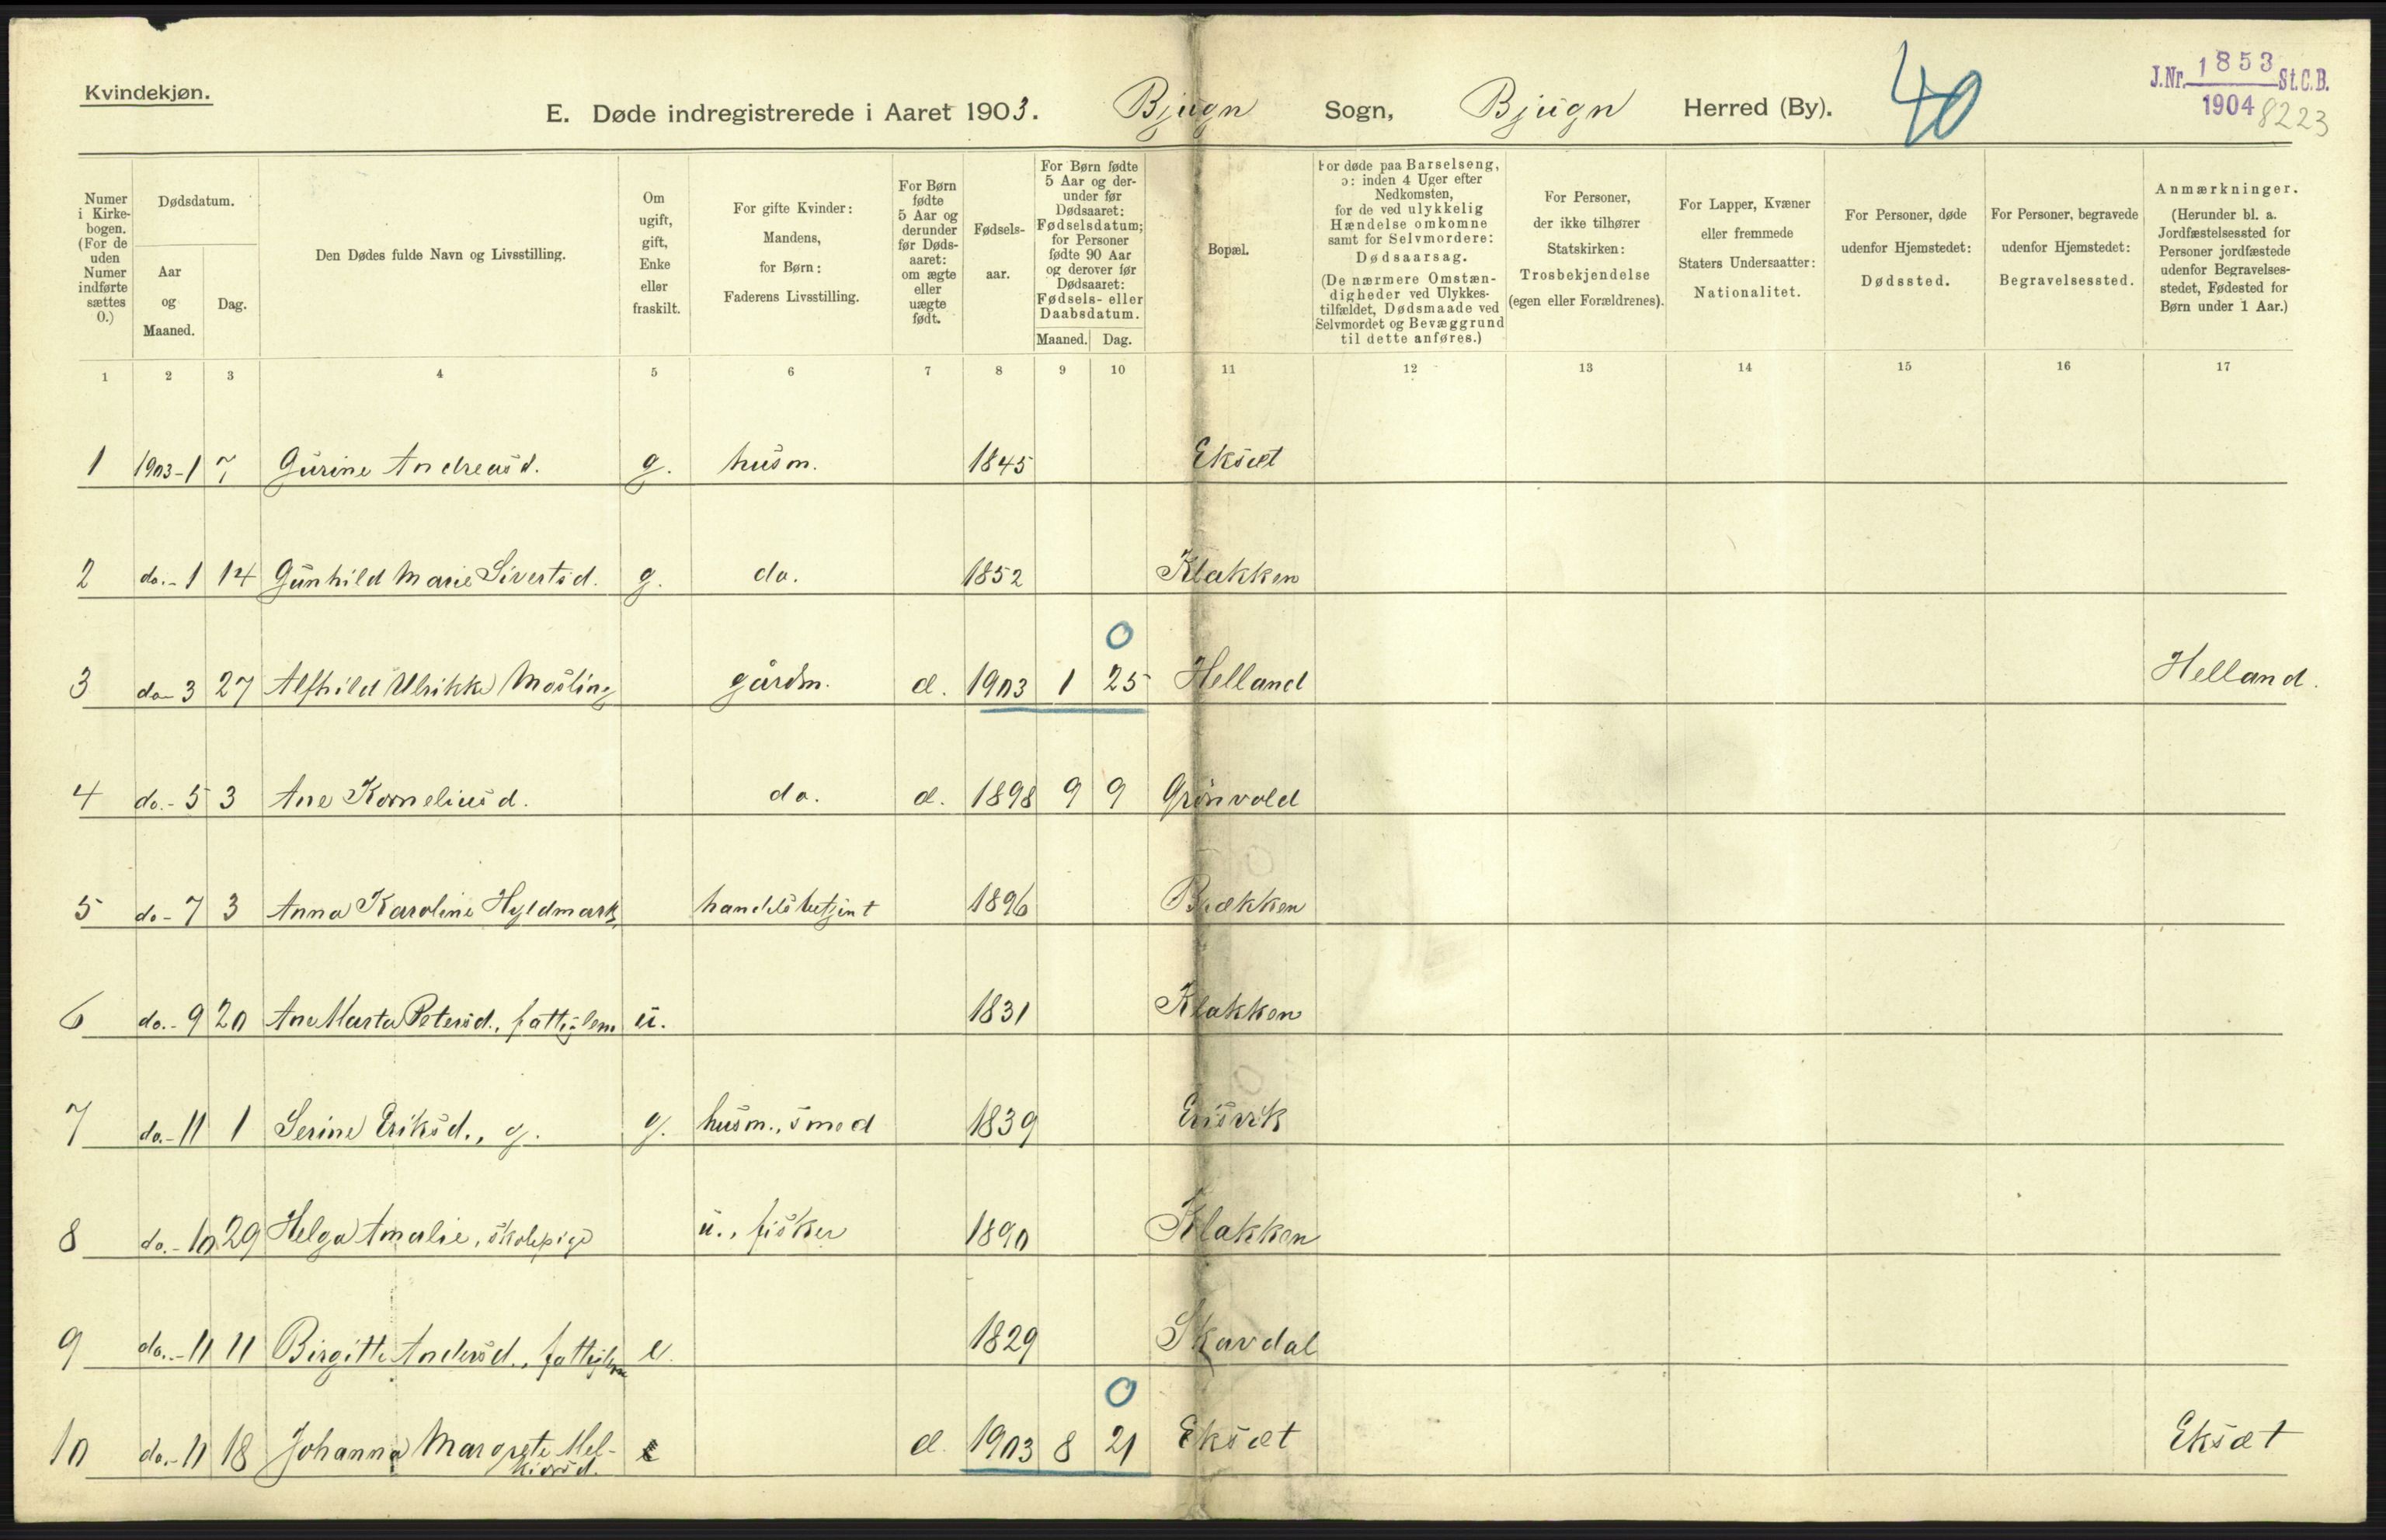 Kvindekjøn.
E. Døde indregistrerede i Aaret 1903. Bjugn Sogn, Bjugn Herred (By). 40
J.Nr. 1853 St.C.B.
1904 8223
Numer i Kirkebogen. (For de uden Numer indførte sættes 0.)
Dødsdatum.
Aar og Maaned.
Dag.
Den Dødes fulde Navn og Livsstilling.
Om ugift, gift, Enke eller fraskilt.
For gifte Kvinder: Mandens, for Børn: Faderens Livsstilling.
For Børn fødte 5 Aar og derunder før Dødsaaret: om ægte eller uægte født.
Fødselsaar.
For Børn fødte 5 Aar og derunder før Dødsaaret: Fødselsdatum; for Personer fødte 90 Aar og derover før Dødsaaret: Fødsels- eller Daabsdatum.
Maaned. Dag.
Bopæl.
For døde paa Barselseng, ɔ: inden 4 Uger efter Nedkomsten, for de ved ulykkelig Hændelse omkomne samt for Selvmordere: Dødsaarsag. (De nærmere Omstændigheder ved Ulykkestilfældet, Dødsmaade ved Selvmordet og Bevæggrund til dette anføres.)
For Personer, der ikke tilhører Statskirken: Trosbekjendelse (egen eller Forældrenes).
For Lapper, Kvæner eller fremmede Staters Undersaatter: Nationalitet.
For Personer, døde udenfor Hjemstedet: Dødssted.
For Personer, begravede udenfor Hjemstedet: Begravelsessted.
Anmærkninger. (Herunder bl. a. Jordfæstelsessted for Personer jordfæstede udenfor Begravelsesstedet, Fødested for Børn under 1 Aar.)
1 2 3 4 5 6 7 8 9 10 11 12 13 14 15 16 17
1 1903-1 7 Gurine Andreasd. g. husm. 1845 Eksæt
2 do.-1 14 Gunhild Marie Sivertsd. g. do. 1852 Klakken
0
3 do-3 27 Alfhild Ulrikke Møsling gårdm. æ. 1903 1 25 Helland Helland.
4 do.-5 3 Ane Korneliusd. do. æ. 1898 9 9 Grønvold
5 do-7 3 Anna Karoline Hyldmark, handelsbetjent 1896 Bækken
6 do.-9 20 Ane Marta Petersd., fattiglem u. 1831 Klakken
7 do.-11 1 Serine Eriksd., g. g. husm., smed 1839
8 do.-10 29 Helga Amalie, skolepige u., fisker 1890 Klakken
9 do.-11 11 Birgitte Andersd., fattiglem e. 1829 Skavdal
0
10 do.-11 18 Johanna Margrete Melkiorsd. e æ. 1903 8 21 Eksæt Eksæt